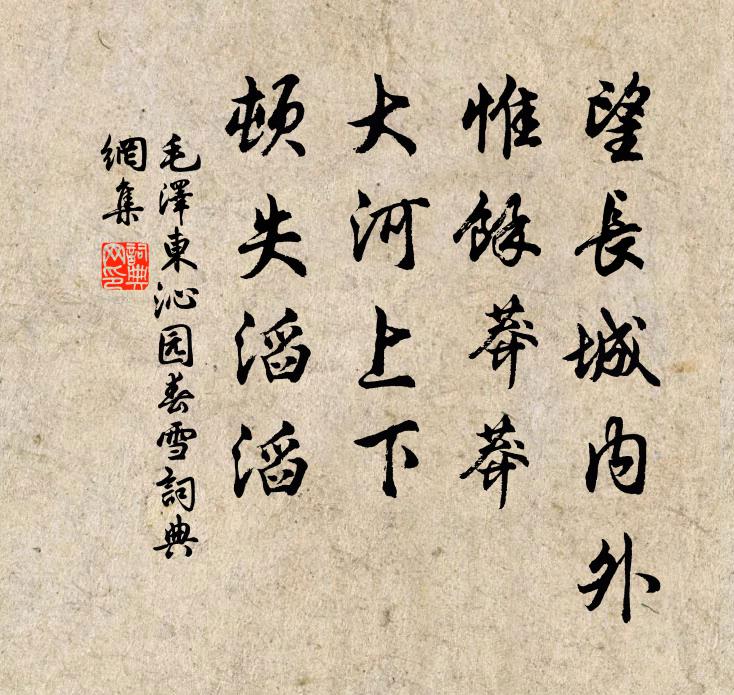 望長城內外
惟餘莽莽
大河上下
頓失滔滔
毛澤東沁园春雪詞典
網集
詞典
网印